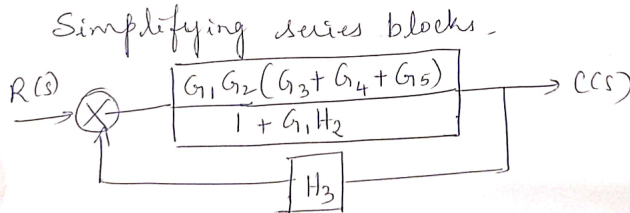 Simplifying series blocks.
R(s)
G₁ G₂ (G₃ + G₄ + G₅)
1 + G₁ H₂
C(s)
H₃